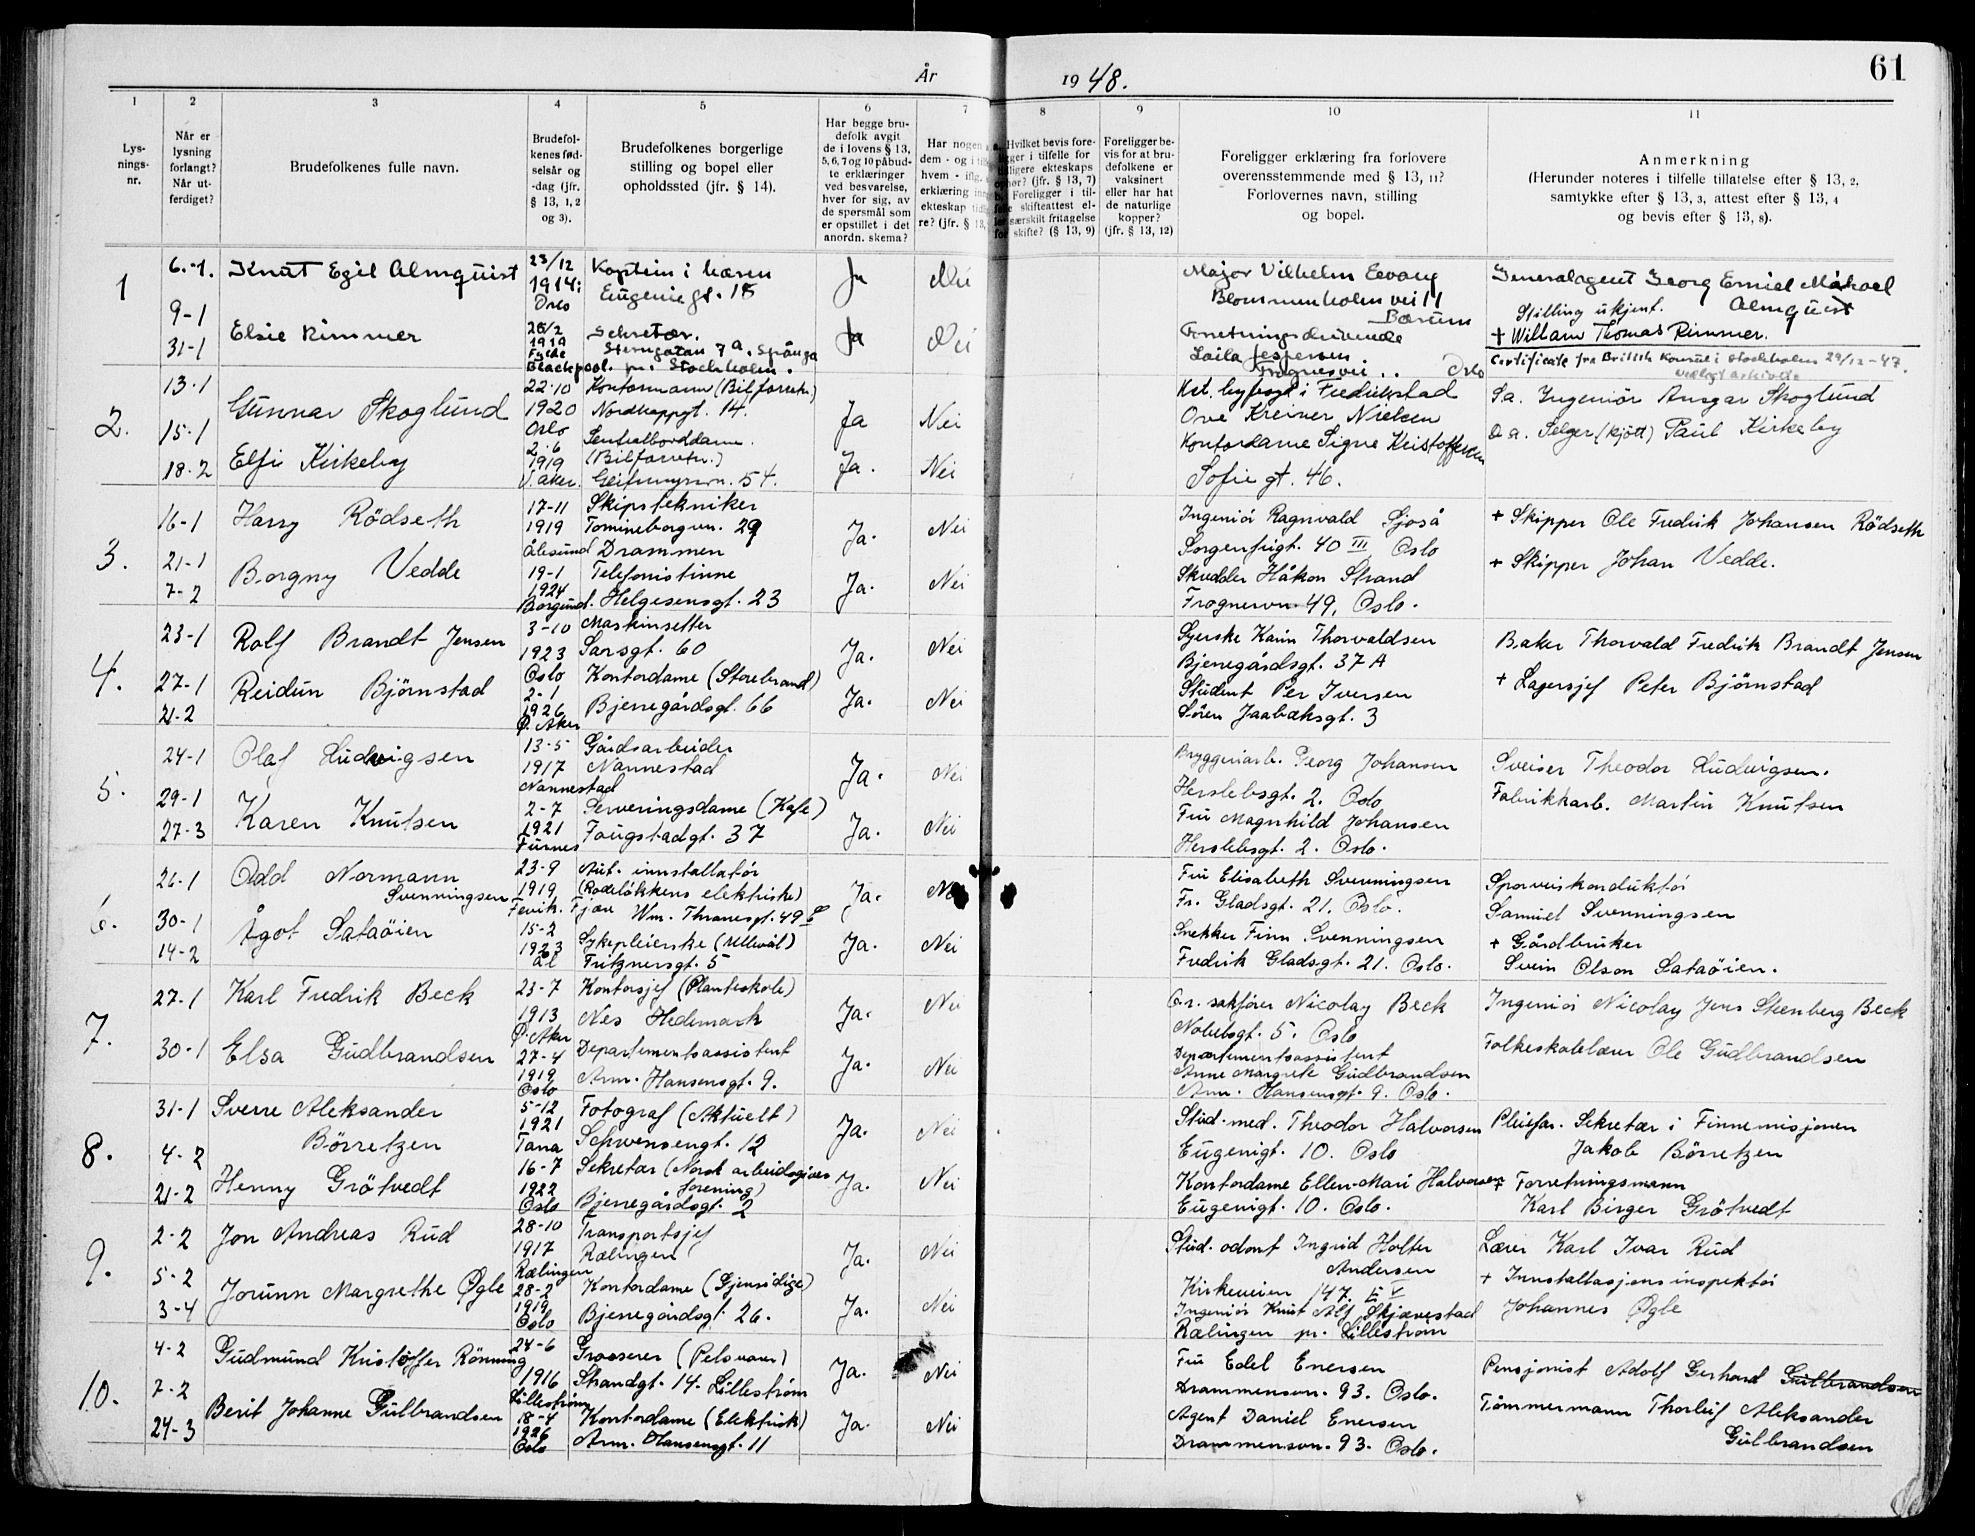 År 1948.
61
1 2 3 4 5 6 7 8 9 10 11
Lysningsnr.
Når er lysning forlangt? Når utferdiget?
Brudefolkenes fulle navn.
Brudefolkenes fødselsår og -dag (jfr. § 13, 1, 2 og 3).
Brudefolkenes borgerlige stilling og bopel eller opholdssted (jfr. § 14).
Har begge brudefolk avgit de i lovens § 13, 5, 6, 7 og 10 påbudte erklæringer ved besvarelse, hver for sig, av de spørsmål som er opstillet i det anordn. skema?
Foreligger bevis for at brudefolkene er vaksinert eller har hat de naturlige kopper? (jfr. § 13, 12)
Foreligger erklæring fra forlovere overensstemmende med § 13, 11? Forlovernes navn, stilling og bopel.
Anmerkning
(Herunder noteres i tilfelle tillatelse efter § 13, 2, samtykke efter § 13, 3, attest efter § 13, 4 og bevis efter § 13, 8).
1
6.-1.
9-1
31-1
Knut Egil Almquist
23/12
1914:
Oslo
Kaptein i hæren
Eugenie gt. 15
Ja
Nei
Major Vilhelm
Blommenholmvei 11
Bærum
Generalagent Georg Emiel Mikael
Almquist
Elsie Rimmer
26/2
1919
Fylde
Blackpool.
Sekretær.
Sterngatan 7a. Spånga
pr. Stockholm.
Ja
Nei
Forretningsdrivende
Laila Jespersen
Frognervei .. Oslo
Stilling ukjent.
+ William Thomas Rimmer.
Certificate fra British Konsul i Stockholm 29/12-47.
2.
13.1
15.1
18.2
Gunnar Skoglund
22.10
1920
Oslo
Kontormann (Bilforretn.)
Nordkappgt. 14.
Ja
Nei
Kst. byfogd i Fredrikstad
Ove Kreiner Nielsen
S.a. Ingeniør Ansgar Skoglund
Elfi Kirkeby
2.6
1919
V. Aker.
Sentralborddame.
(Bilforretn.)
Geitmyrsvn. 54.
Ja.
Nei
Kontordame Signe Kristoffersen
Sofie gt. 46.
D.a. Selger (kjøtt) Paul Kirkeby
3.
16-1
21-1
7-2
Harry Rödseth
17-11
1919
Ålesund
Skipstekniker
Tomineborgvn. 29
Drammen
Ja.
Nei
Ingeniör Ragnvald Sjoså
Sorgenfrigt. 40 III Oslo
+ Skipper Ole Fredrik Johansen Rödseth
Borgny Vedde
19-1
1924
Borgund.
Telefonistinne
Helgesensgt. 23
Ja.
Nei
Skredder Håkon Strand
Frognervn. 49, Oslo.
+ Skipper Johan Vedde.
4.
23-1
27-1
21-2
Rolf Brandt Jensen
3-10
1923
Oslo
Maskinsetter
Sarsgt. 60
Ja.
Nei
Syerske Karin Thorvaldsen
Bjerregårdsgt. 37A
Baker Thorvald Fredrik Brandt Jensen
Reidun Bjørnstad
2-1
1926
Ø. Aker
Kontordame (Storebrand)
Bjerregårdsgt. 66
Ja.
Nei
Student Per Iversen
Sören Jaabæksgt. 3
+ Lagersjef Peter Bjørnstad
5.
24-1
29-1
27-3
Olaf Ludvigsen
13-5
1917
Nannestad
Gårdsarbeider
Nannestad
Ja.
Nei
Bryggeriarb. Georg Johansen
Herslebsgt. 2. Oslo
Sveiser Theodor Ludvigsen.
Karen Knutsen
2-7
1921
Furnes
Serveringsdame (Kafe)
Fougstadgt. 37
Ja.
Nei
Fru Magnhild Johansen
Herslebsgt. 2. Oslo.
Fabrikkarb. Martin Knutsen
6.
26-1
30-1
14-2
Odd Normann
Svenningsen
23-9
1919
Fevik. Fjære
Aut. innstallatör
(Rodelökkens elektriske)
Wm. Thranesgt. 49
Ja.
Nei
Fru Elisabeth Svenningsen
Fr. Gladsgt. 21. Oslo.
Sporveiskonduktör
Samuel Svenningsen
Ågot Sataöien
15-2
1923
Ål
Sykepleierske (Ullevål)
Fritznersgt. 5
Ja.
Nei
Snekker Finn Svenningsen
Fredrik Gladsgt. 21. Oslo.
+ Gårdbruker
Svein Olson Sataöien.
7.
27-1
30-1
Karl Fredrik Beck
23-7
1913
Ø. Aker
Kontorsjef (Planteskole)
Nes Hedemark
Ja.
Nei
O.r. sakfører Nicolay Beck
Nobelsgt. 5. Oslo
Ingeniör Nicolay Jens Steenberg Beck
Elsa Gudbrandsen
27-4
1919
Oslo
Departementsassistent
Arm. Hansensgt. 9.
Ja.
Nei
Departementsassistent
Anne Margrete Gudbrandsen
Arm. Hansensgt. 9. Oslo.
Folkeskolelærer Ole Gudbrandsen
8.
31-1
4-2
21-2
Sverre Aleksander
Börretzen
5-12
1921
Tana
Fotograf (Aktuelt)
Schwensengt. 12
Ja.
Nei
Stud. med. Theodor Halvorsen
Eugenigt. 10. Oslo
Pleiefar. Sekretær i Finnemisjonen
Jakob Börretzen
Henny Grötvedt
16-7
1922
Oslo
Sekretær (Norsk arbeidsgiver
forening)
Bjerregårdsgt. 2
Ja.
Nei
Kontordame Ellen-Mari Halvorsen
Eugenigt. 10. Oslo.
+ Forretningsmann
Karl Birger Grötvedt
9.
2-2
5-2
3-4
Jon Andreas Rud
28-10
1917
Rælingen
Transportsjef
Rælingen
Ja.
Nei
Stud. odont Ingrid Holter
Andersen
Kirkeveien 147. E V
Lærer Karl Ivar Rud
Jorunn Margrethe Øgle
28-2
1919
Oslo
Kontordame (Gjensidige)
Bjerregårdsgt. 26.
Ja.
Nei
Ingeniör Knut Alf Skjævestad
Rælingen pr. Lillestrøm
+ Innstallasjonsinspektör
Johannes Øgle
10.
4-2
7-2
24-3
Gudmund Kristoffer Rönning
24-6
1916
Lillestrøm
Grosserer (Pelsvarer)
Strandgt. 14. Lillestrøm
Ja.
Nei
Fru Edel Enersen
Drammensvn. 93. Oslo.
Pensjonist Adolf Gerhard Gulbrandsen
Berit Johanne Gulbrandsen
18-4
1926
Oslo
Kontordame (Elektrisk)
Arm. Hansensgt. 11
Ja.
Nei
Agent Daniel Enersen
Drammensvn. 93. Oslo.
Tömmermann Thorleif Aleksander
Gulbrandsen